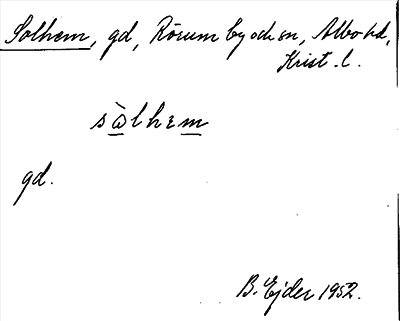 Solhem, gd, Rörum by o ch sn, Albo hd,
Krist. l.
sὼlhεm
gd.
B. Ejder 1952.